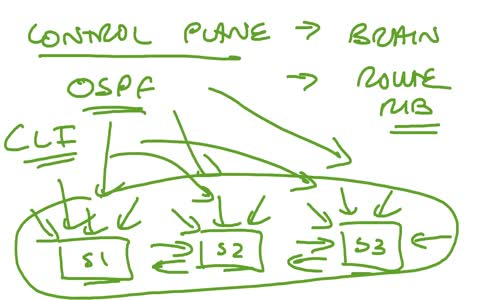 CONTROL PLANE → BRAIN
OSPF → ROUTE
RIB
CLI
S1 S2 S3